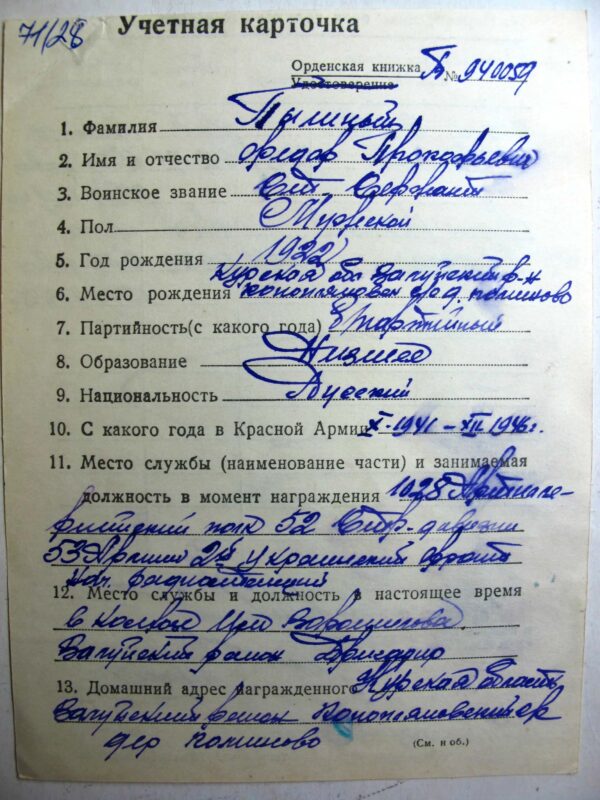 71/28
Учетная карточка
Орденская книжка Б № 940059
Удостоверение
1. Фамилия
2. Имя и отчество Федор Прокофьевич
3. Воинское звание Ст. Сержант
4. Пол Мужской
5. Год рождения 1922
Курская обл р-н
6. Место рождения с/с д.
7. Партийность(с какого года) б/партийный
8. Образование Низшее
9. Национальность Русский
10. С какого года в Красной Армии X-1941 – XII 1946 г.
11. Место службы (наименование части) и занимаемая
должность в момент награждения 1028 Артиле-
рийский полк 52 Стр. дивизии
53 Армии 2й Украинский фронт
Нач. радиостанций
12. Место службы и должность в настоящее время
в колхозе Им Ворошилова
район Бригадир
13. Домашний адрес награжденного Курская область
район
дер
(См. н об.)